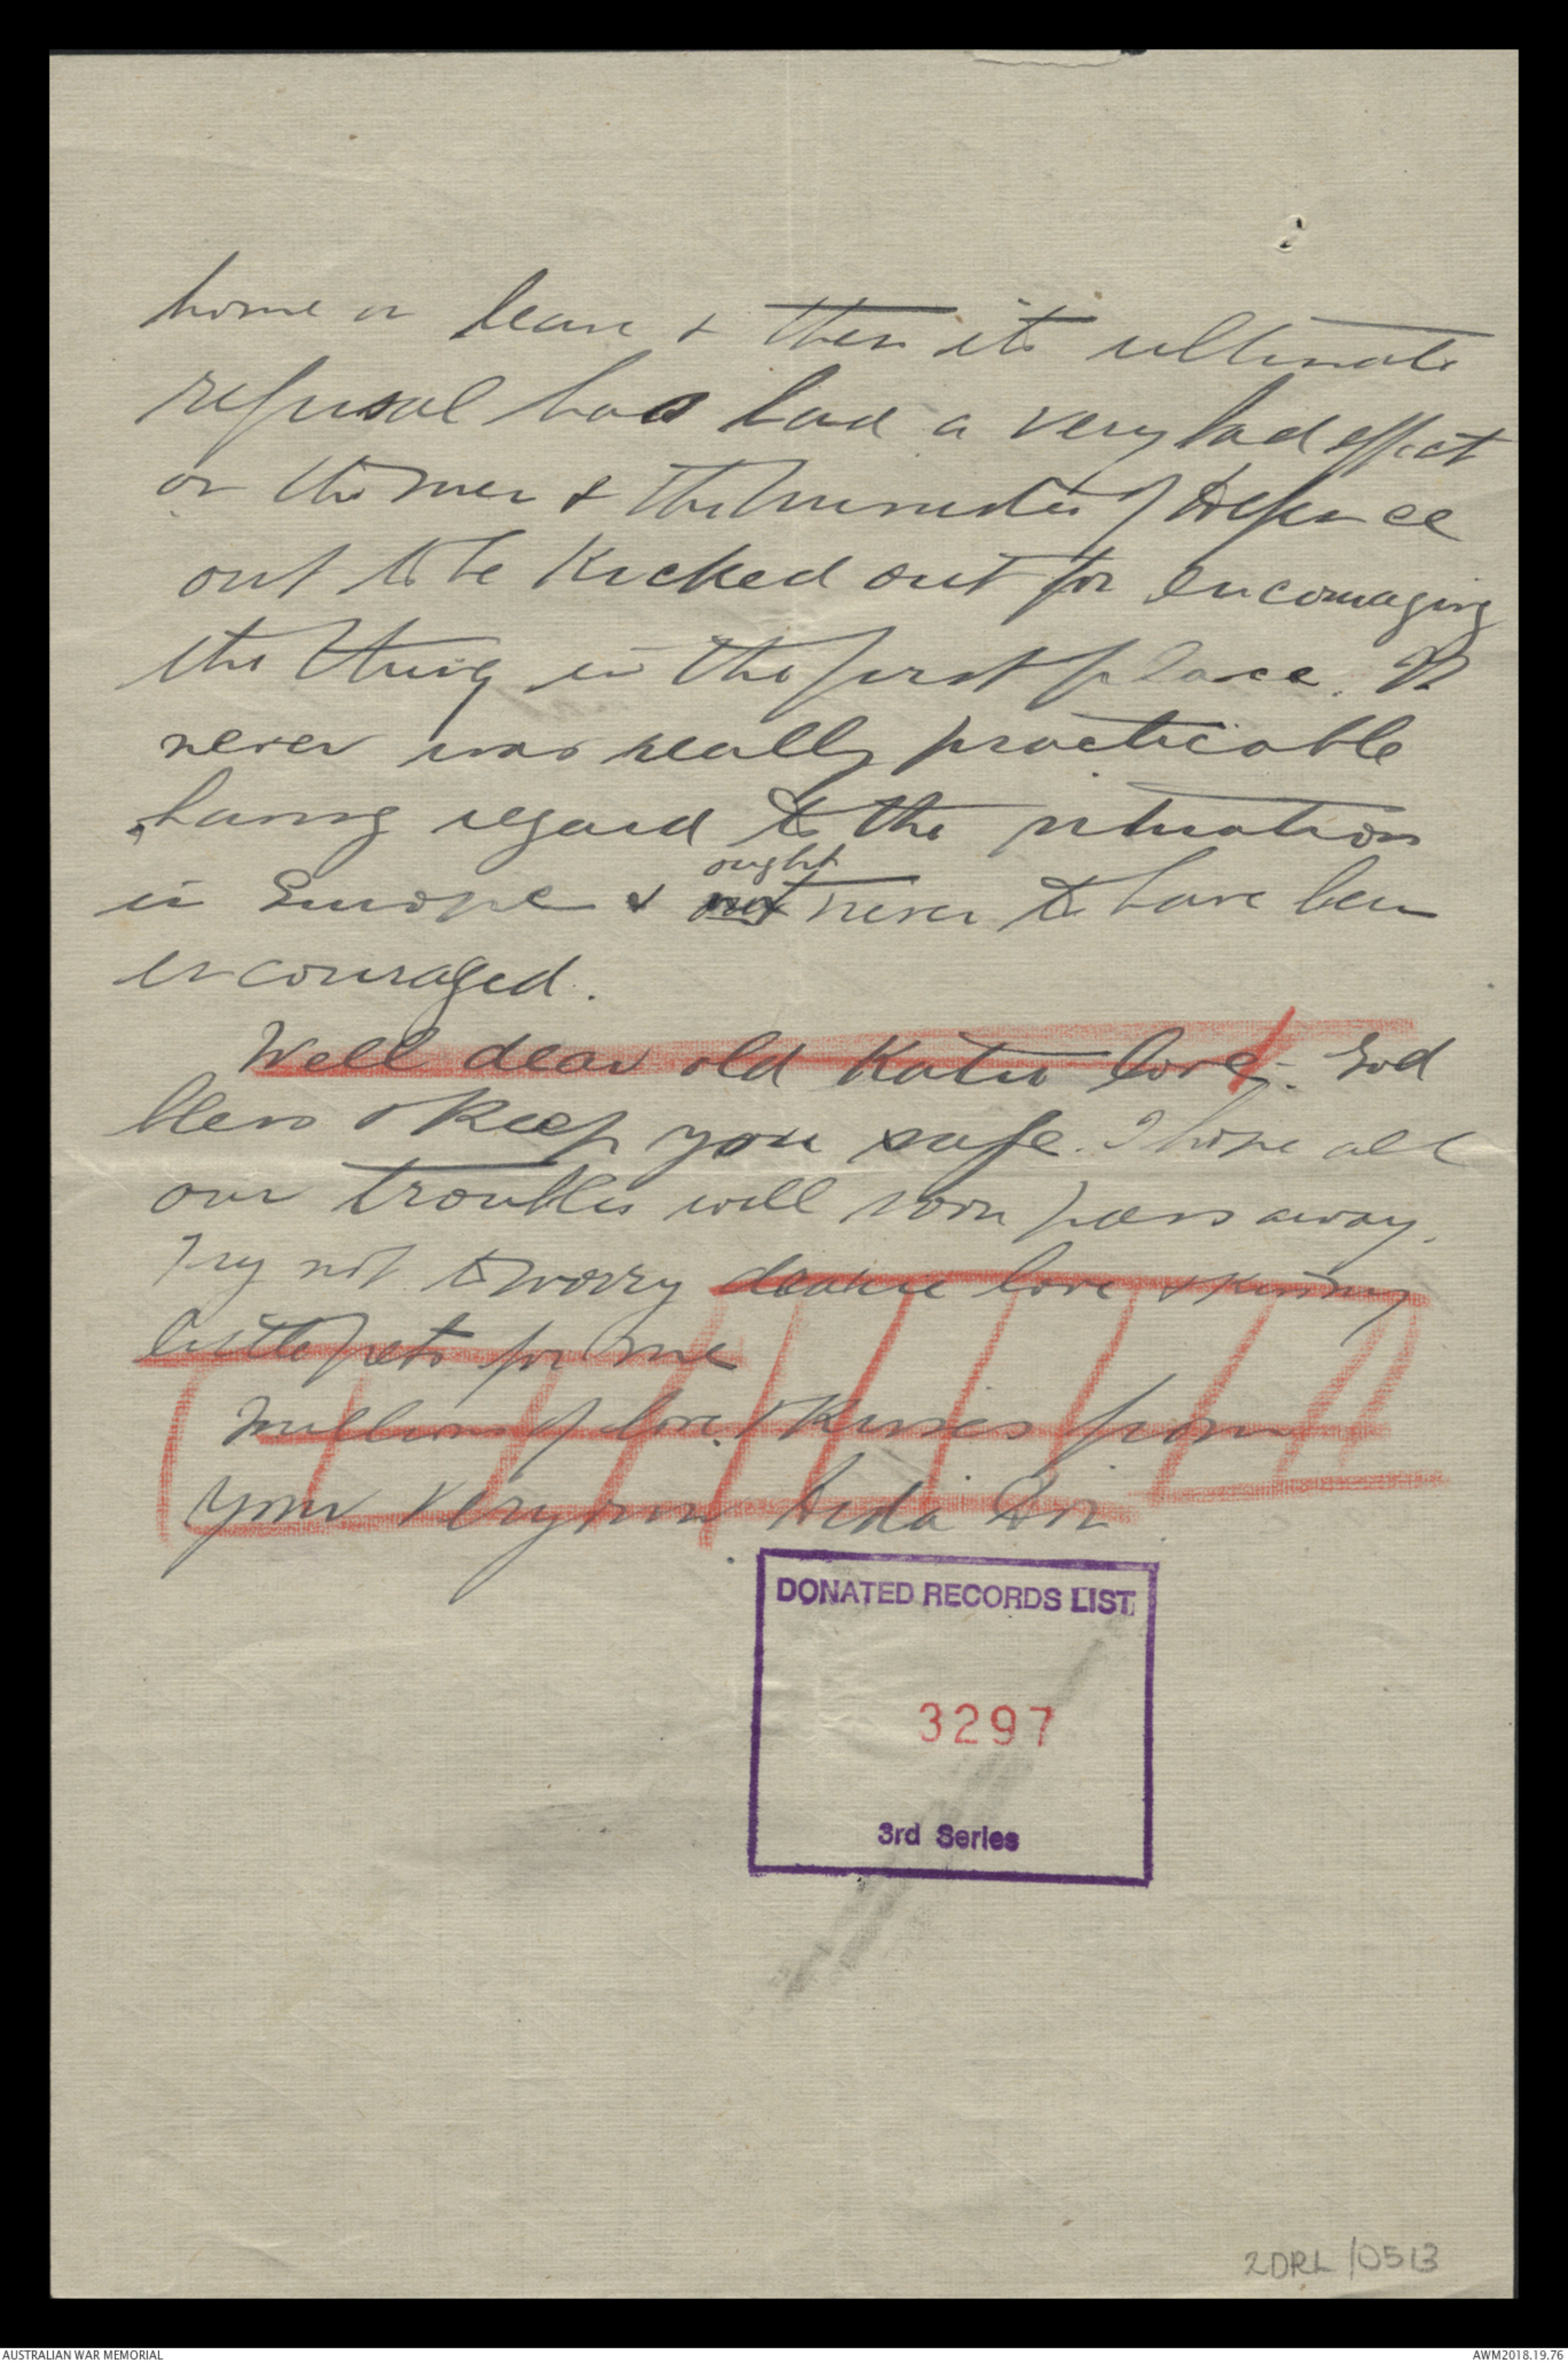 home on leave & then its ultimate
refusal has had a very bad effect
on the men & the Minister of Defence
out to be kicked out for encouraging
the thing in the first place. It
never was really practicable
having regard to the situation
ought
in Europe & out never to have been
encouraged.
Well dear old Katie love. God
bless & keep you safe. I hope all
our troubles will soon pass away.
Try not to worry dearie love & kissing
little pets for me
Millions of love & kisses from
your very own Dida
DONATED RECORDS LIST
3297
3rd Series
2DRL/0513
AUSTRALIAN WAR MEMORIAL
AWM2018.19.76